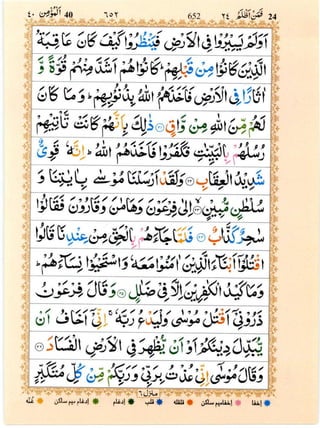 المؤمن ٤٠ ٦٥٢ 652 فمن اظلم ٢٤ 24
اَوَلَمْ يَسِيْرُوْا فِى الْاَرْضِ فَيَنْظُرُوْا كَيْفَ كَانَ عَاقِبَةُ
الَّذِيْنَ كَانُوْا مِنْ قَبْلِهِمْ ؕ كَانُوْا هُمْ اَشَدَّ مِنْهُمْ قُوَّةً وَّ
اٰثَارًا فِى الْاَرْضِ فَاَخَذَهُمُ اللّٰهُ بِذُنُوْبِهِمْ ؕ وَمَا كَانَ
لَهُمْ مِّنَ اللّٰهِ مِنْ وَّاقٍ ﴿۲۱﴾ ذٰلِكَ بِاَنَّهُمْ كَانَتْ تَّاْتِيْهِمْ
رُسُلُهُمْ بِالْبَيِّنٰتِ فَكَفَرُوْا فَاَخَذَهُمُ اللّٰهُ ؕ اِنَّهٗ قَوِىٌّ
شَدِيْدُ الْعِقَابِ ﴿۲۲﴾ وَلَقَدْ اَرْسَلْنَا مُوْسٰى بِاٰيٰتِنَا وَ
سُلْطٰنٍ مُّبِيْنٍ ﴿۲۳﴾ اِلٰى فِرْعَوْنَ وَهَامٰنَ وَقَارُوْنَ فَقَالُوْا
سٰحِرٌ كَذَّابٌ ﴿۲۴﴾ فَلَمَّا جَآءَهُمْ بِالْحَقِّ مِنْ عِنْدِنَا قَالُوا
اقْتُلُوْۤا اَبْنَآءَ الَّذِيْنَ اٰمَنُوْا مَعَهٗ وَاسْتَحْيُوْا نِسَآءَهُمْ ؕ
وَمَا كَيْدُ الْكٰفِرِيْنَ اِلَّا فِىْ ضَلٰلٍ ﴿۲۵﴾ وَقَالَ فِرْعَوْنُ
ذَرُوْنِىْۤ اَقْتُلْ مُوْسٰى وَلْيَدْعُ رَبَّهٗ ۚ اِنِّىْۤ اَخَافُ اَنْ
يُّبَدِّلَ دِيْنَكُمْ اَوْ اَنْ يُّظْهِرَ فِى الْاَرْضِ الْفَسَادَ ﴿۲۶﴾
وَقَالَ مُوْسٰىۤ اِنِّىْ عُذْتُ بِرَبِّىْ وَرَبِّكُمْ مِّنْ كُلِّ مُتَكَبِّرٍ
منزل ٦
اخفا اخفا میم ساکن قلقلہ قلب ادغام ادغام میم ساکن غنّہ